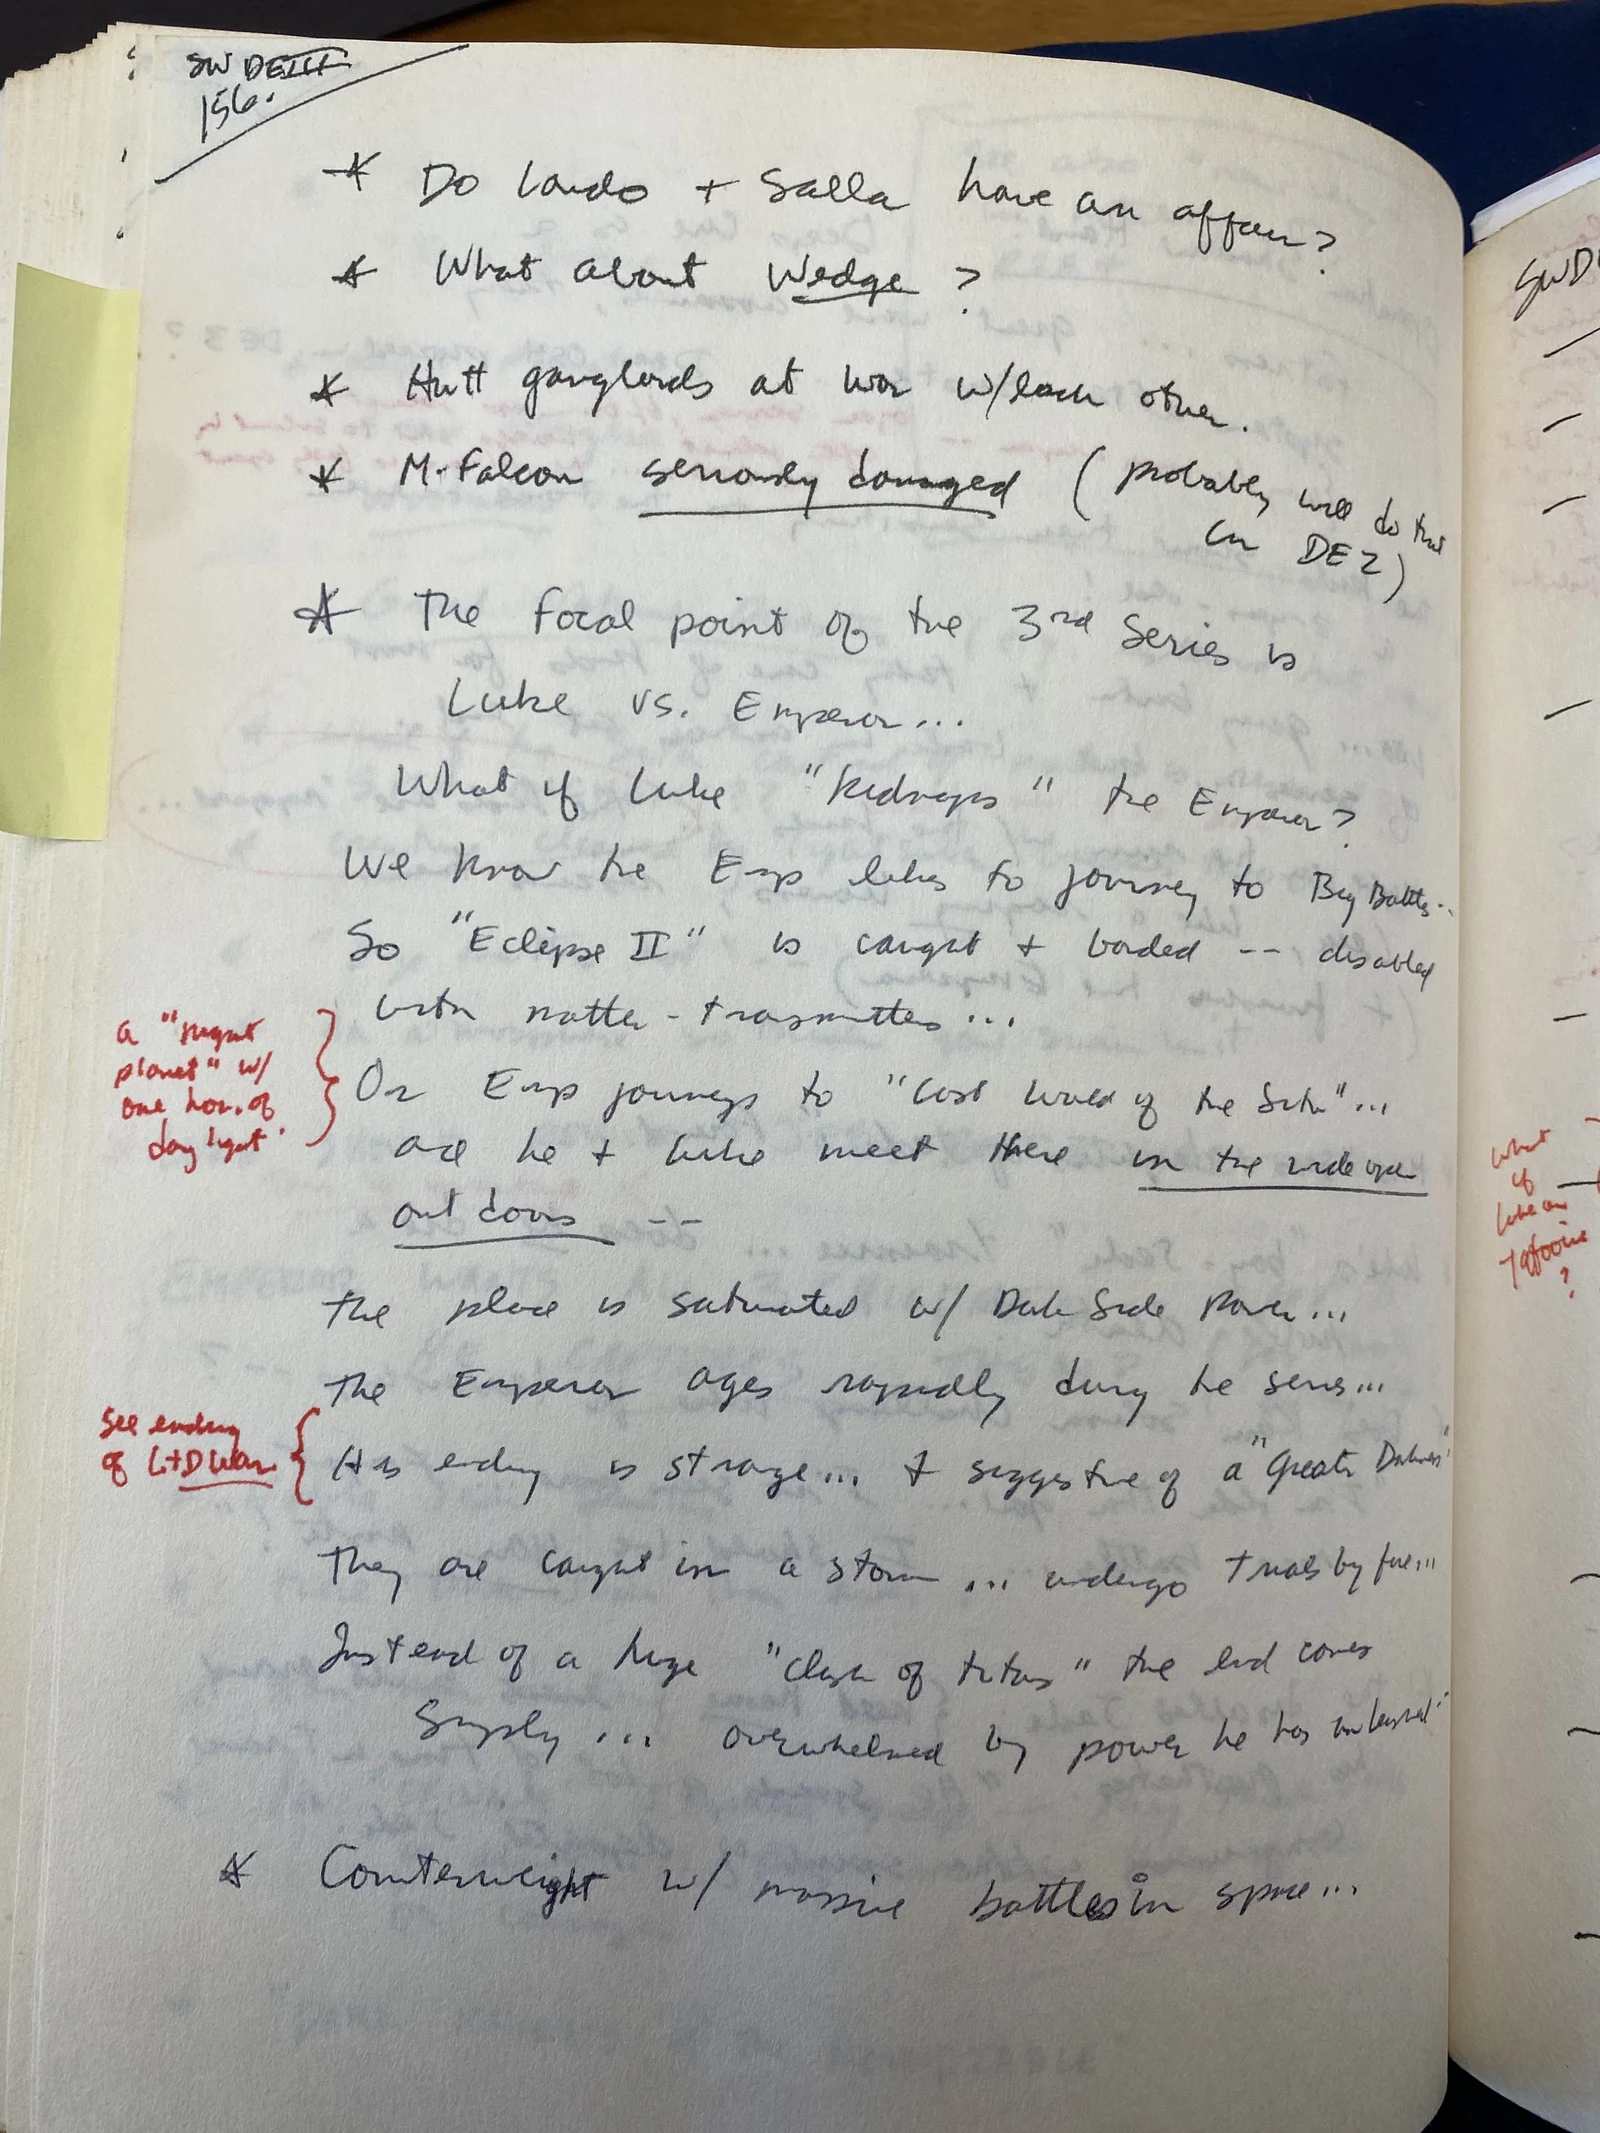 SW DE III
156.
* Do Lando + Salla have an affair?
* What about Wedge ?
* Hutt ganglords at war w/each other.
* M. Falcon seriously damaged ( probably will do that
in DE2)
* The Focal point of the 3rd Series is
Luke vs. Emperor...
What if Luke "kidnaps" the Emperor?
We know the Emp likes to journey to Big Battles..
So "Eclipse II" is caught + boarded -- disabled
with matter-transmitters...
Or Emp journeys to "Lost World of the Sith"...
and he + Luke meet there in the wide open
outdoors --
a "night
planet" w/
one hour of
daylight.
The place is saturated w/ Dark Side Power...
The Emperor ages rapidly during the series...
His ending is strange... + suggestive of a "Greater Darkness"
see ending
of L+D War.
They are caught in a storm ... undergo trials by fire...
Instead of a huge "clash of titans" the end comes
simply ... overwhelmed by power he has unleashed..
* Counterweight w/ massive battles in space...
SWD
what
if
Luke on
Tatooine
?